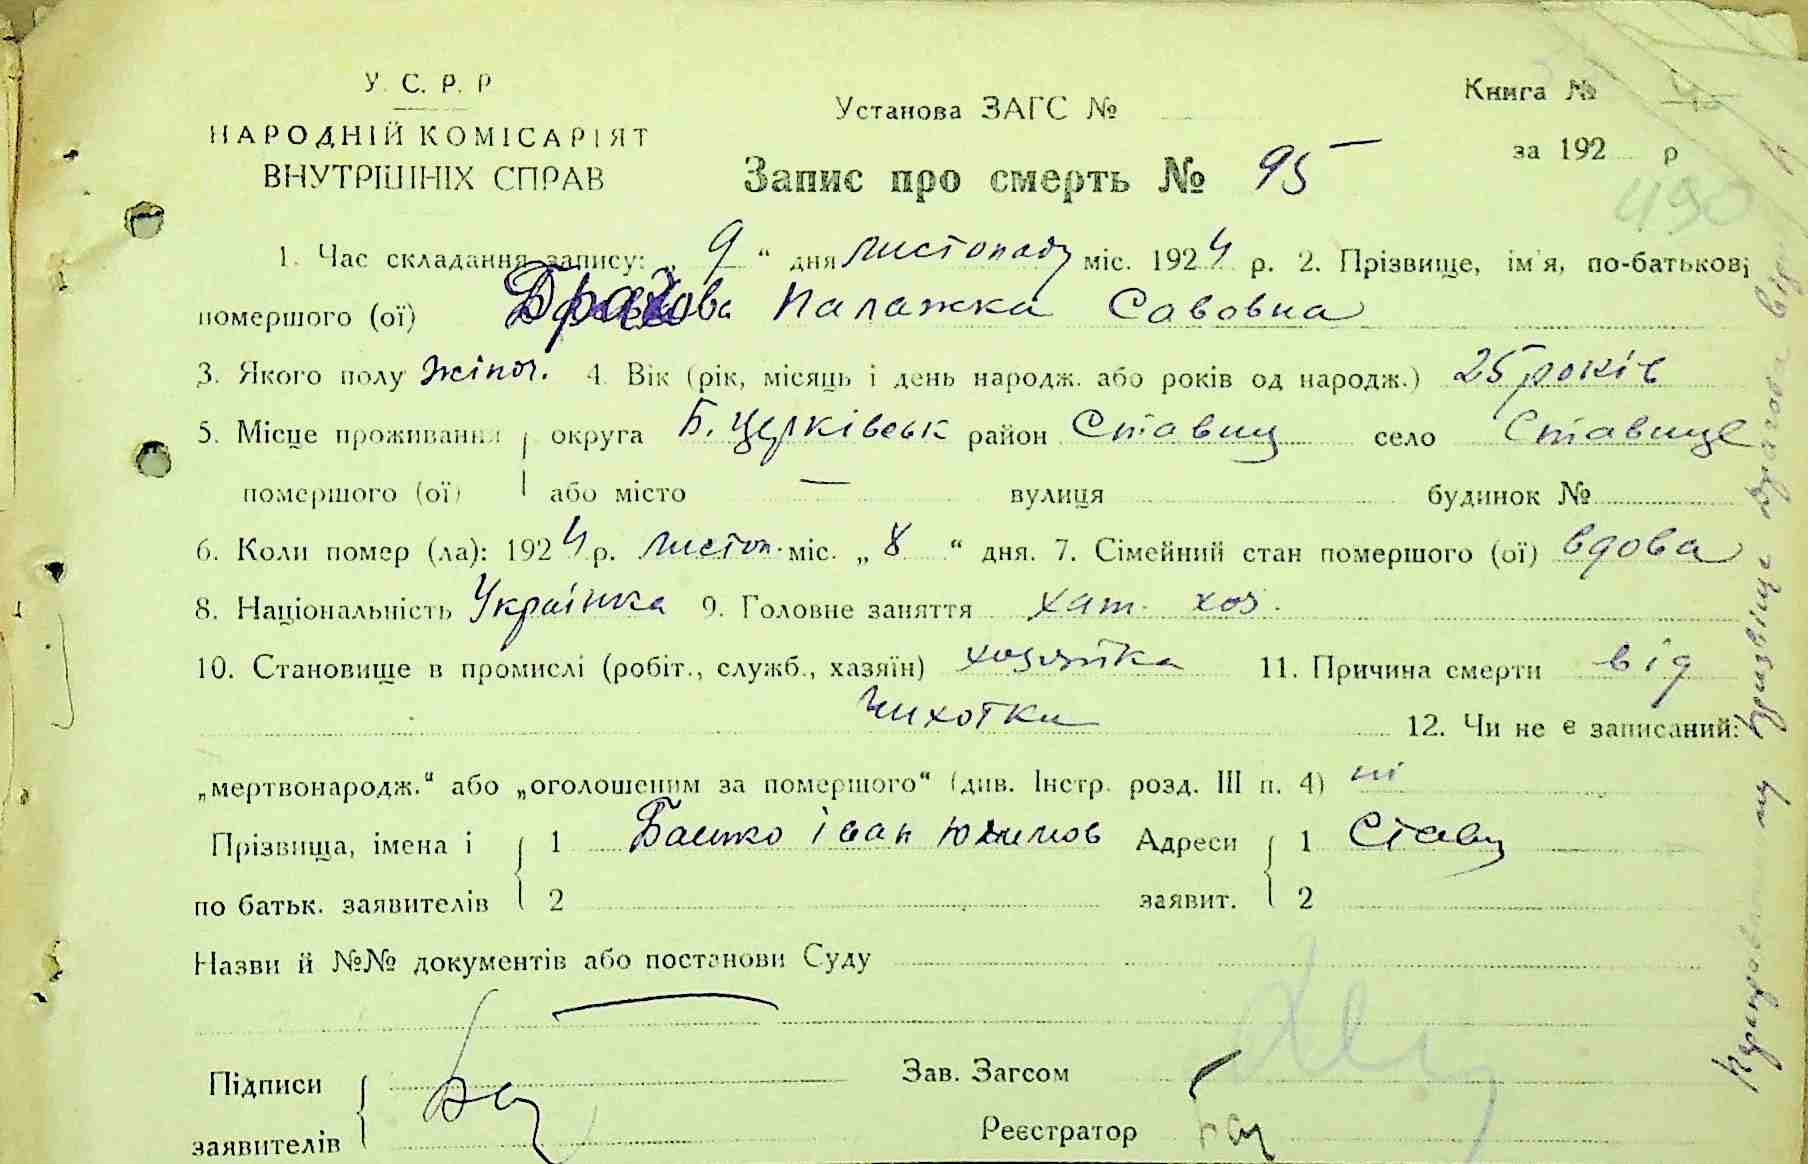 У. С. Р. Р
НАРОДНІЙ КОМІСАРІЯТ
ВНУТРІШНІХ СПРАВ
Установа ЗАГС №
Книга №
за 192 р
490
Запис про смерть № 95
1. Час складання запису: „ 9 “ дня листопаду міс. 1924 р. 2. Прізвище, ім'я, по-батькові
помершого (ої) Палажка Савовна
3. Якого полу жіноч. 4. Вік (рік, місяць і день народж. або років од народж.) 25 років
5. Місце проживання округа Б. Церківськ район Ставищ село Ставище
помершого (ої) або місто — вулиця будинок №
6. Коли помер (ла): 1924 р. листоп. міс. „ 8 “ дня. 7. Сімейний стан помершого (ої) вдова
8. Національність Українка 9. Головне заняття хат. хоз.
10. Становище в промислі (робіт., служб., хазяїн) хозяйка 11. Причина смерти від
чихотки 12. Чи не є записаний:
„мертвонародж.“ або „оголошеним за помершого“ (див. Інстр. розд. III п. 4) ні
Прізвища, імена і 1 Іван Адреси 1 Ставищ
по батьк. заявителів 2 заявит. 2
Назви й №№ документів або постанови Суду
Підписи
заявителів
Зав. Загсом
Реєстратор
прізвище